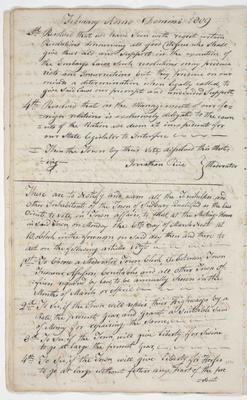 February Anno Domini 1809
3th Resolved that we have seen with regret certain
Resolutions denouncing all good Citizens who shall
give their aid and Support in the execution of
the Embargo Laws Such resolutions may produce
riots and Insurrections but they produce on our
minds a determination when legally called to
give Said Laws our prompt and united Support
4th Resolved that in the Management of our fo-
reign relations is exclusively delegated to the coun-
cils of the Nation and deem it improper for
our State Legislator to Interfere therewith
Then the Town by their Vote dissolved this Meet-
ing Jonathan Rice Moderator
These are to Notify and warn all the Freeholders and
Other Inhabitants of the Town of Sudbury Qualified as the Law
directs to vote in Town affairs to Meet at the Meeting House
in Said Town on Monday the 6th Day of March Next at
o Clock in the forenoon on said day then and there to
act on the following articles (viz)
1st To Choose a Moderator Town Clerk Selectmen Town
Treasurer Assessors Constables and all other Town of-
ficers required by Law to be annually chosen in the
Months of March or April
2nd To See if the Town will repair their Highways by a
Rate the present year and grant a Suitable Sum
of Money for repairing the Same
3d To See if the Town will give Liberty for Swine
to go at large the present year
4th To See if the Town will give Liberty for Horses
to go at large without fetters any Part of the pre
sent